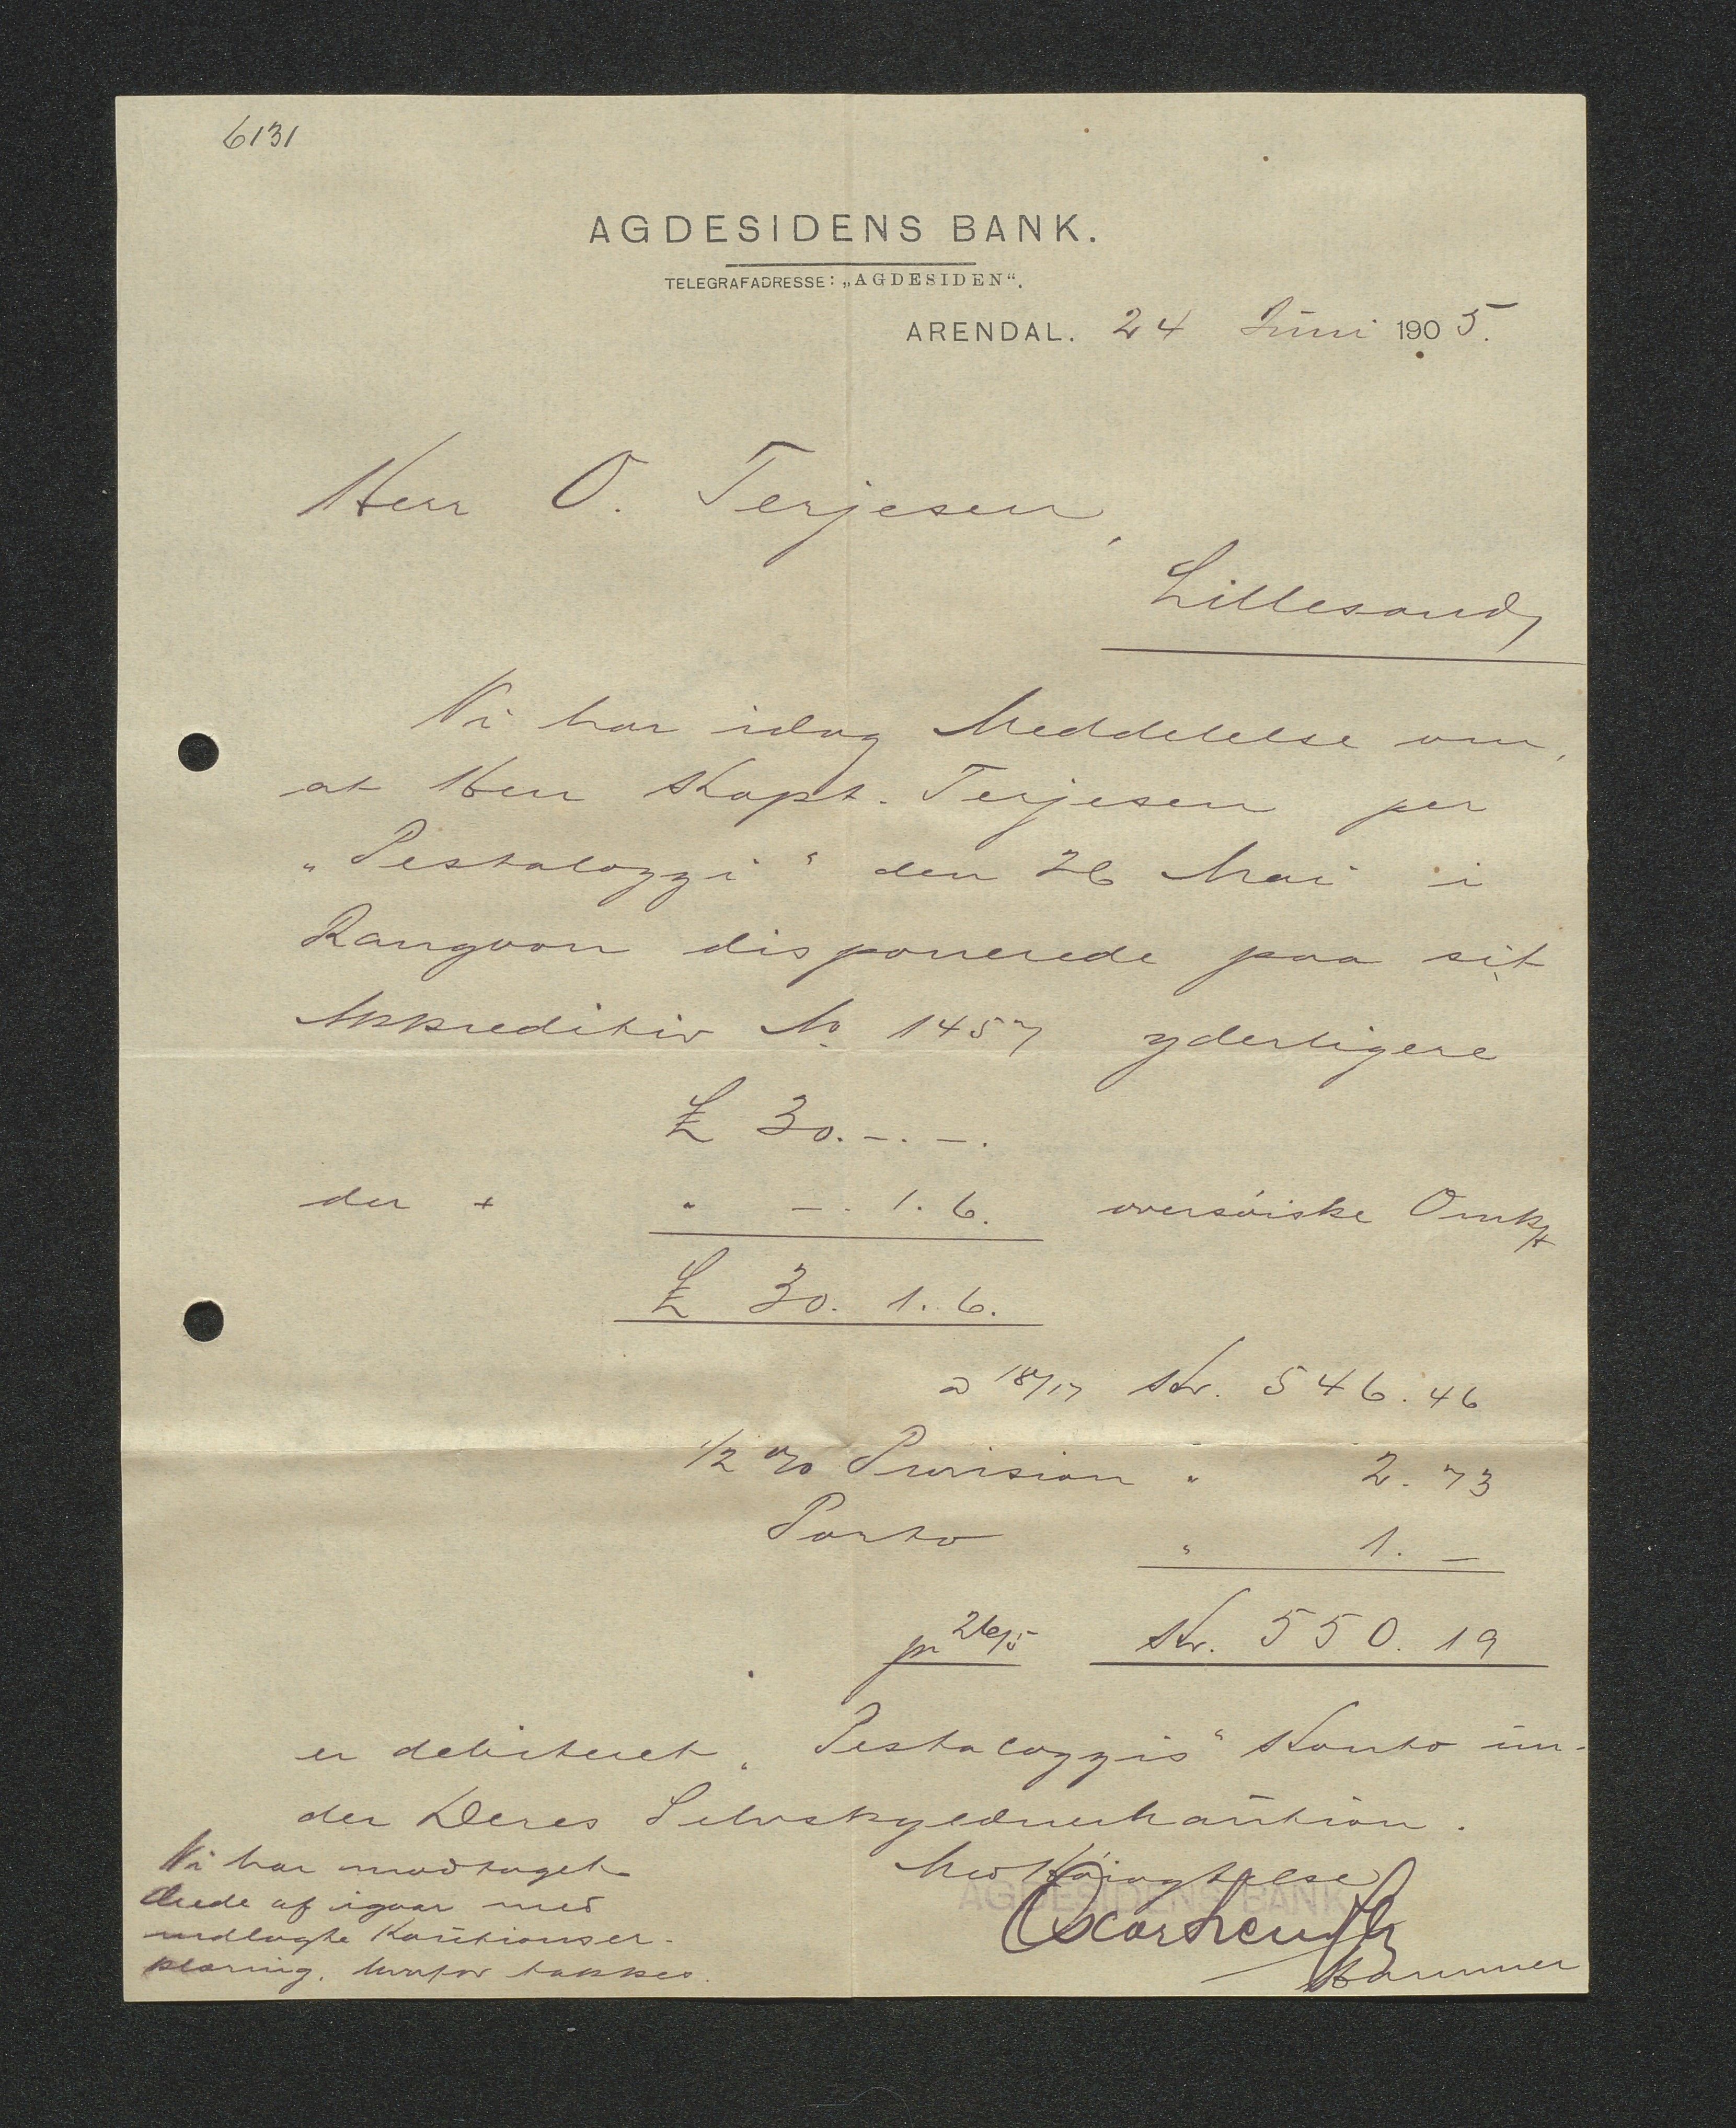 6131
AGDESIDENS BANK.
TELEGRAFADRESSE: „AGDESIDEN“.
ARENDAL. 24 Juni 1905.
Herr O. Terjesen,
Lillesand,
Vi har idag Meddelelse om,
at Herr Kapt. Terjesen per
„Pestalozzi“ den 26 Mai i
Rangoon disponerede paa sit
Akkreditiv No 1457 yderligere
£ 30.-.-.
der + " -. 1. 6. oversøiske Omk
£ 30. 1. 6.
a 18/17 Kr. 546.46
1/2 % Provision " 2.73
Porto " 1.-
pr 26/5 Kr. 550.19
er debiteret „Pestalozzis“ Konto un-
der Deres Selvskyldnerkaution.
Vi har modtaget
Deres af igaar med
indlagte Kautionser-
klæring, hvorfor takkes.
Med Høiagtelse
AGDESIDENS BANK